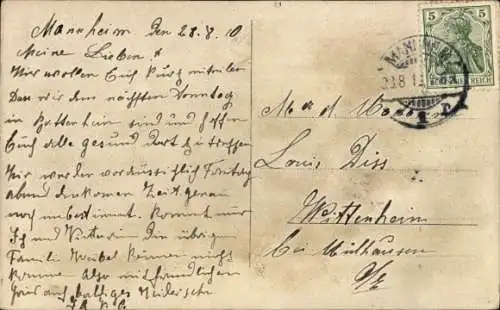 Mannheim den 28.8.10
Meine Lieben!
Wir wollen Euch kurz mitteilen
Das wir den nächsten Sonntag
in Battenheim sind und hoffen
Euch alle gesund dort zu treffen
Wir werden voraussichtlich
abend ankomen Zeit genau
noch unbestimmt. Kommt nur
Ich und die übrig
Familie Weibel können nicht
komme. Also mit freundlichen
Gruss auf baldiges Wiedersehn
5
5
MANNHEIM
Louis Diss
Wittenheim
bei Mülhausen
i/E